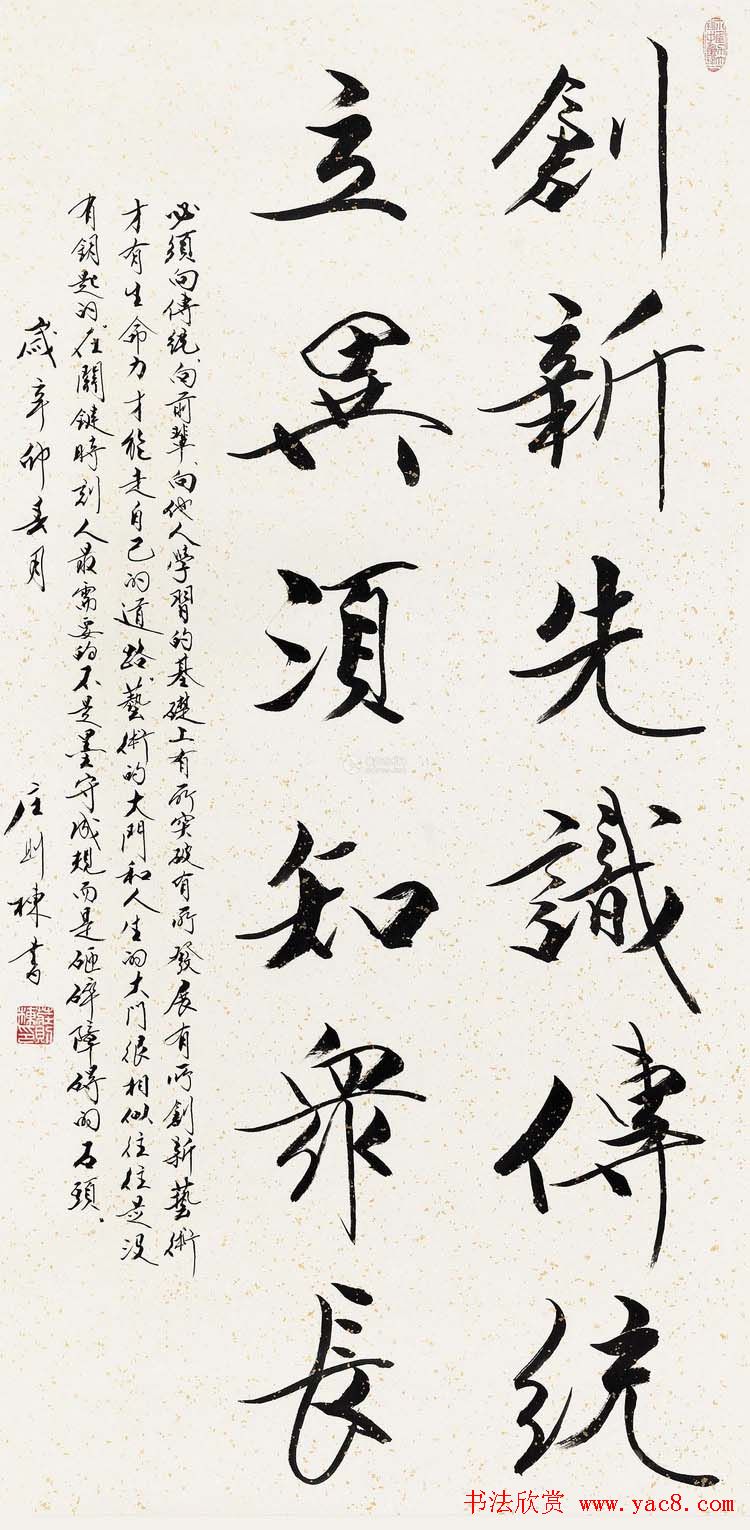 創新先識傳統
立異須知衆長
必須向傳統、向前輩、向他人學習的基礎上有所突破有所發展有所創新藝術
才有生命力才能走自己的道路藝術的大門和人生的大門很相似往往是沒
有鑰匙的。在關鍵時刻人最需要的不是墨守成規而是砸碎障碍的石頭、
歲辛卯春月
庄則棟書
莊則棟印
书法欣赏 www.yac8.com